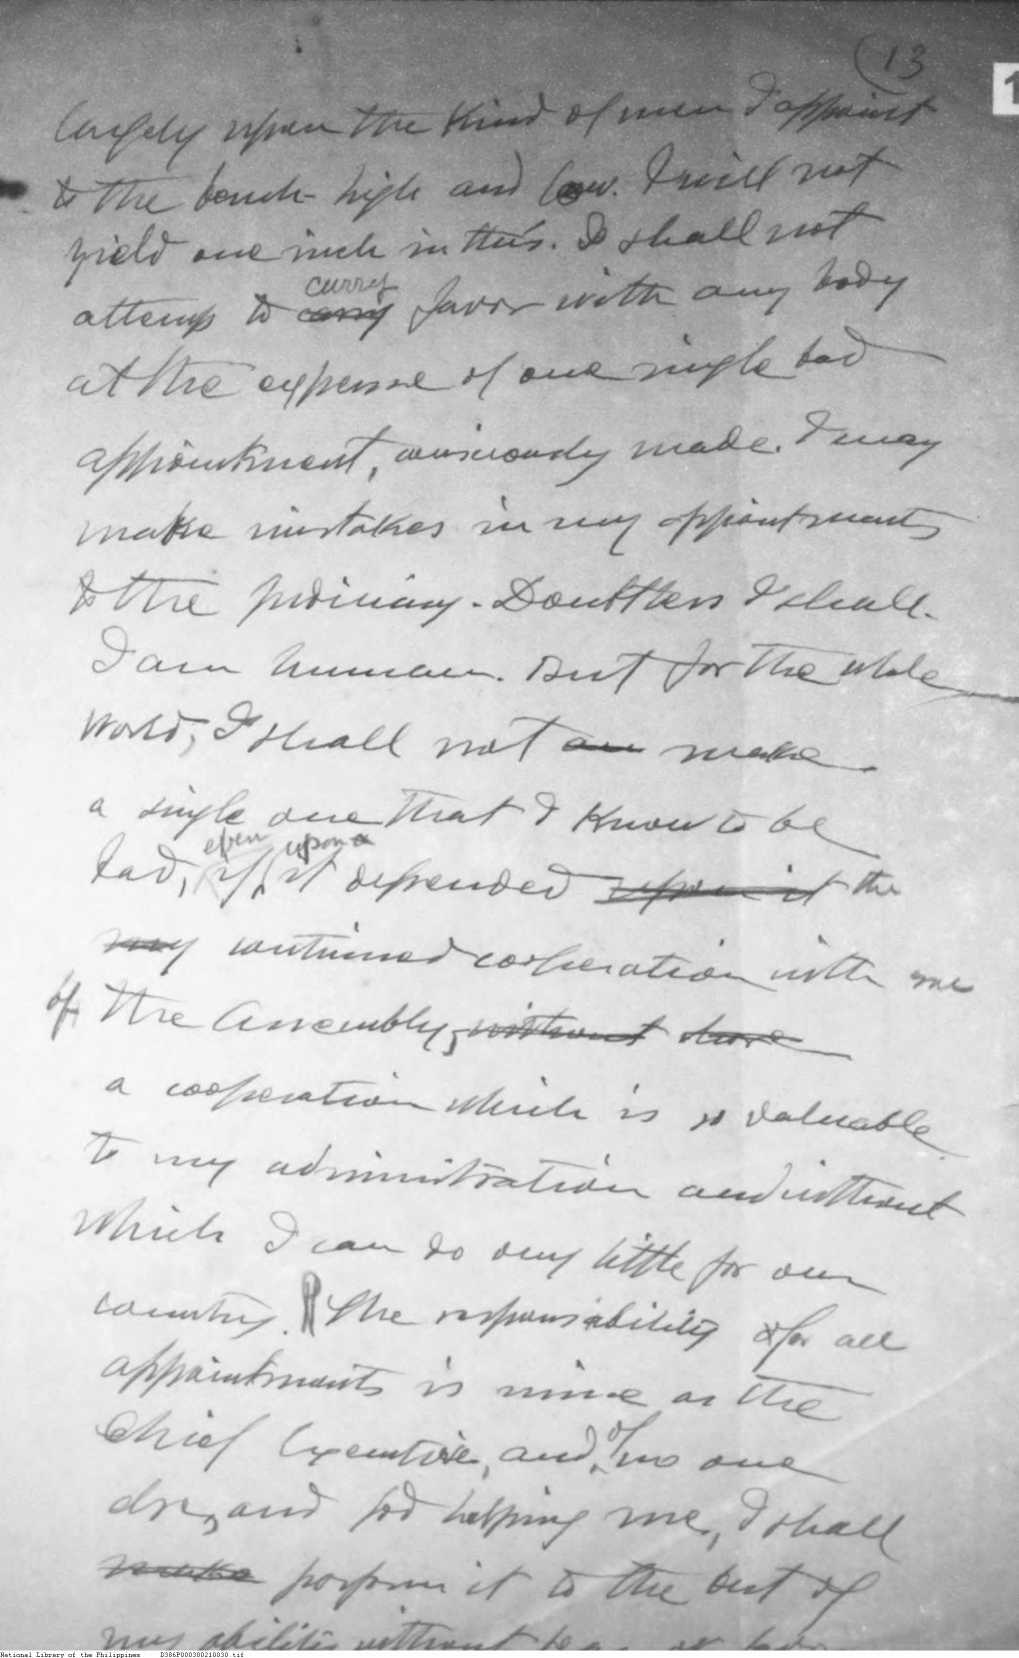 (13
1
largely upon the kind of men I appoint
to the bench - high and low. I will not
yield one inch in this. I shall not
curry
attemp to carry favor with any body
at the expense of one single bad
appointment, consciously made. I may
make mistakes in my appointments
to the judiciary. Doubtless I shall.
I am human. But for the whole
world, I shall not an make
a single one that I know to be
even upon a
bad, if it depended upon it the
my continued cooperation with me
of the Assembly, without
a cooperation which is so valuable
to my administration and without
which I can do very little for our
country. The responsability for all
appointments is mine as the
Chief Executive, and, of no one
else, and God helping me, I shall
make perform it to the best of
my ability without fear or favor
National Library of the Philippines D386P000300210030.tif